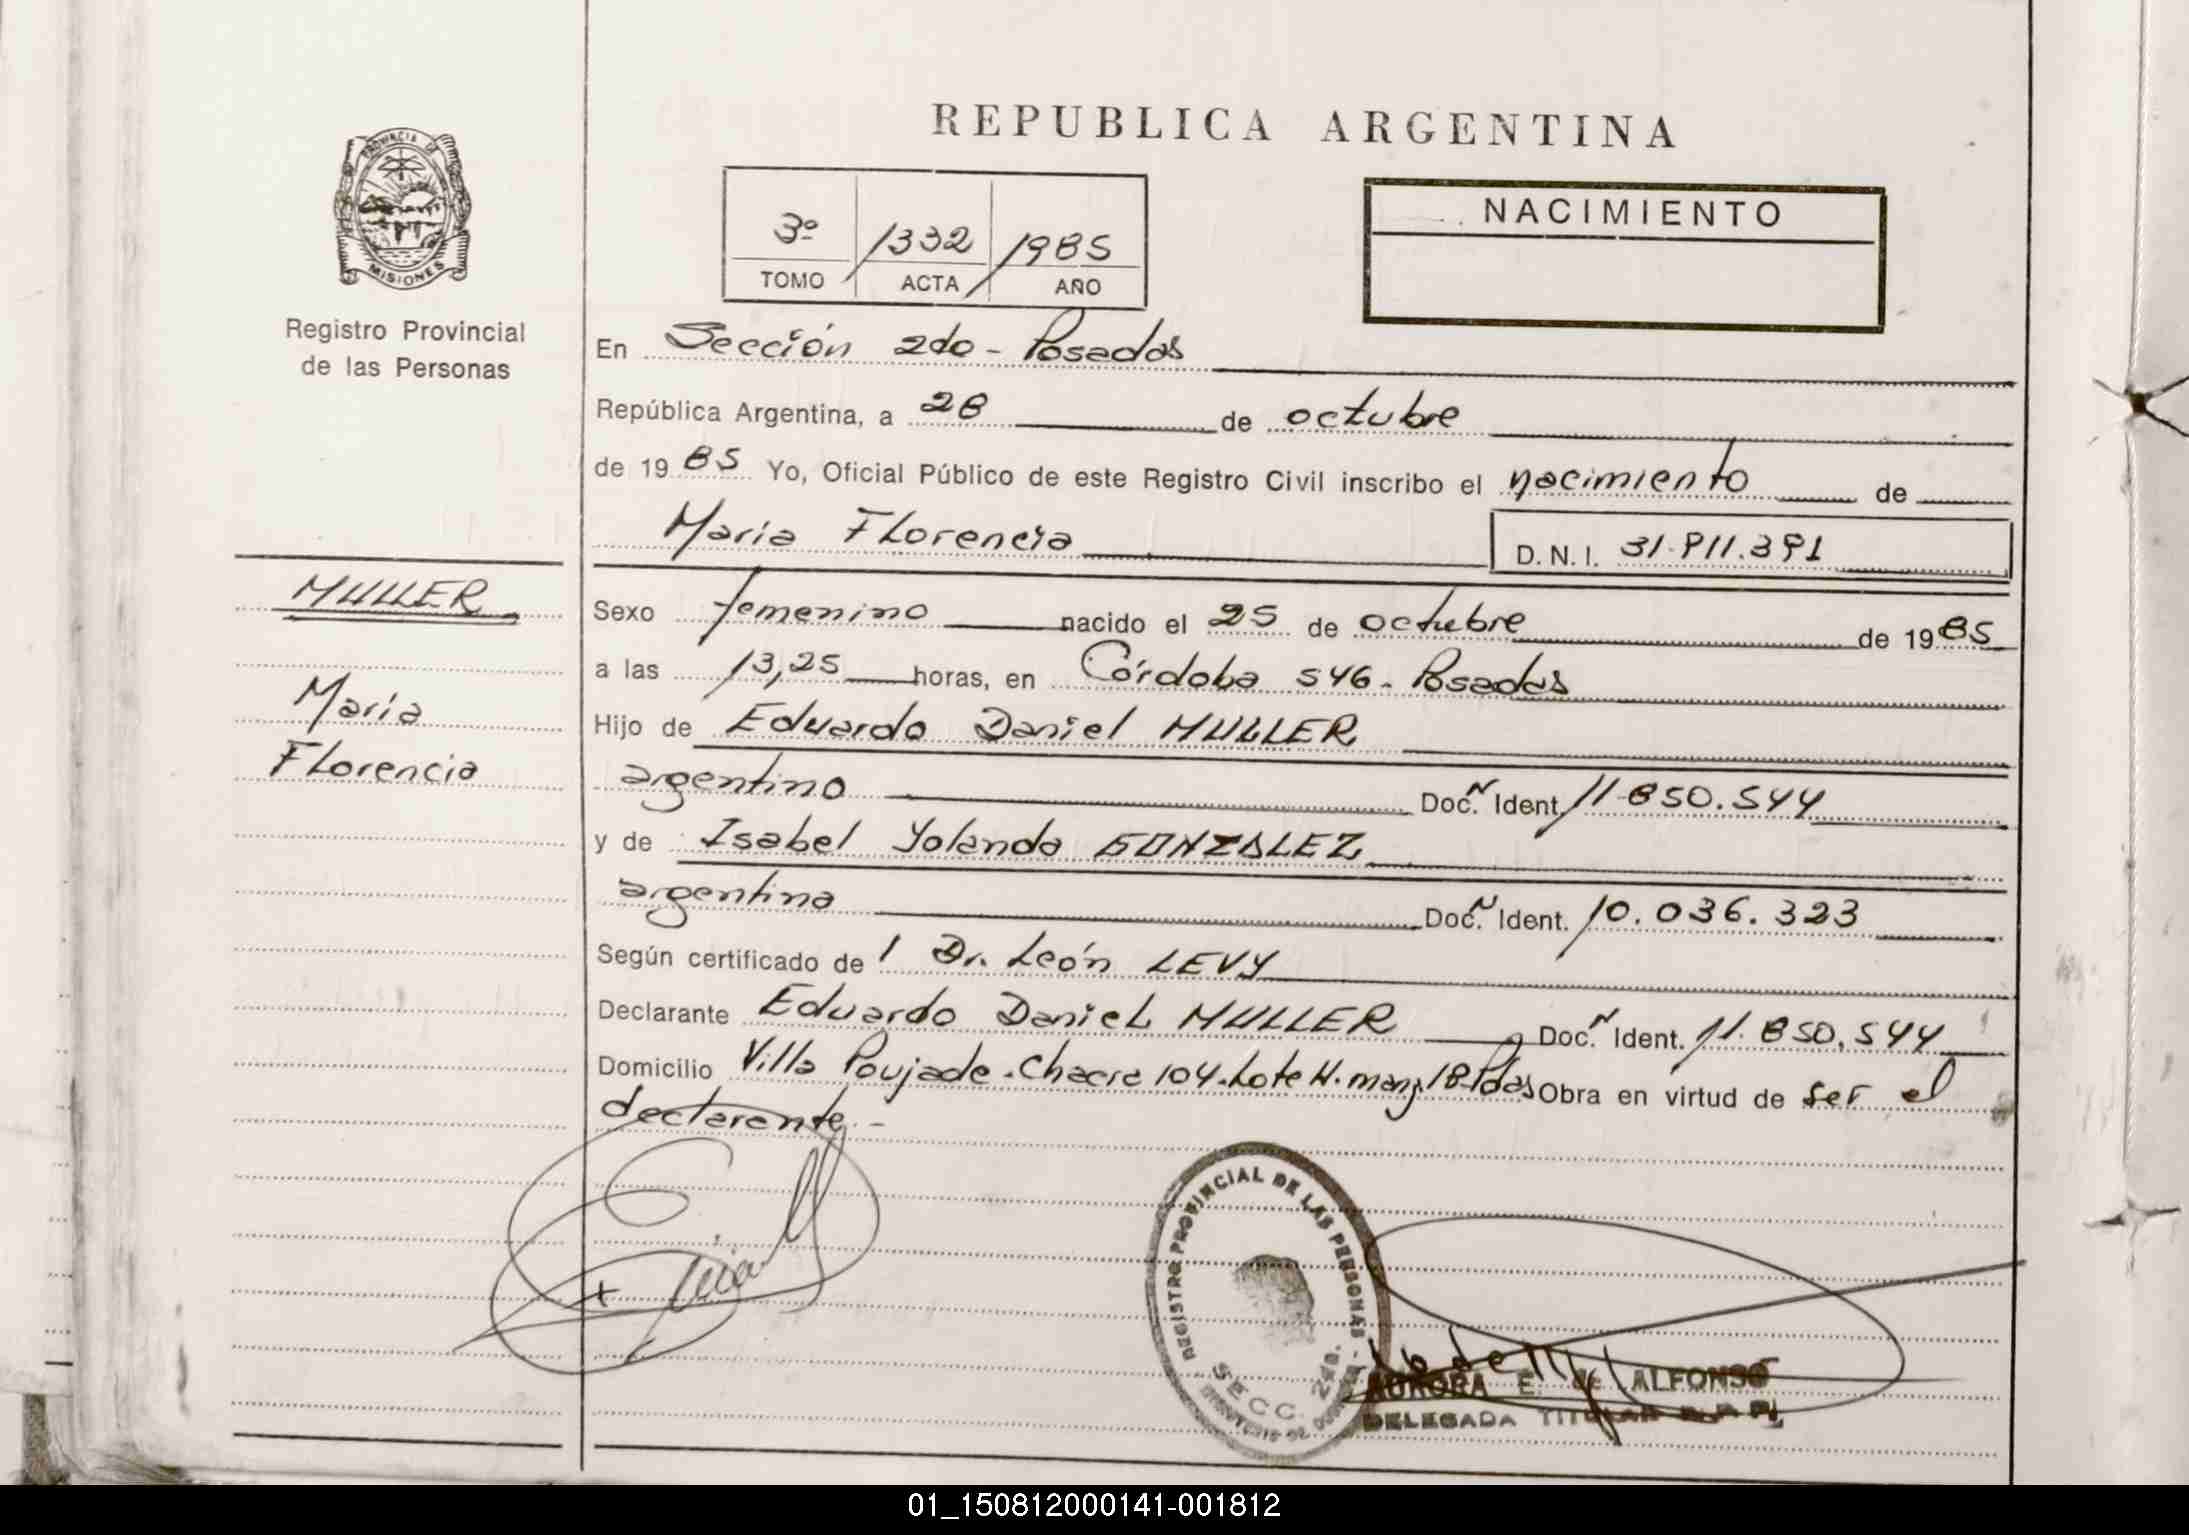 REPUBLICA ARGENTINA
PROVINCIA DE
MISIONES
Registro Provincial
de las Personas
3º 1332 1985
TOMO ACTA AÑO
NACIMIENTO
En Sección 2da - Posadas
República Argentina, a 28 de octubre
de 1985 Yo, Oficial Público de este Registro Civil inscribo el nacimiento de
María Florencia D.N.I. 31.911.391
MULLER
María
Florencia
Sexo femenino nacido el 25 de octubre de 1985
a las 13,25 horas, en Córdoba 546 - Posadas
Hijo de Eduardo Daniel MULLER
argentino Doc. Ident. 11.850.544
y de Isabel Yolanda GONZALEZ
argentina Doc. Ident. 10.036.323
Según certificado de 1 Dr. León LEVY
Declarante Eduardo Daniel MULLER Doc. Ident. 11.850.544
Domicilio Villa Poujade - Chacra 104 - Lote H - manz 18 - Pdas Obra en virtud de ser el
declarante.-
REGISTRO PROVINCIAL DE LAS PERSONAS
SECC. 2da.
AURORA E. de ALFONSO
DELEGADA TITULAR
01_150812000141-001812